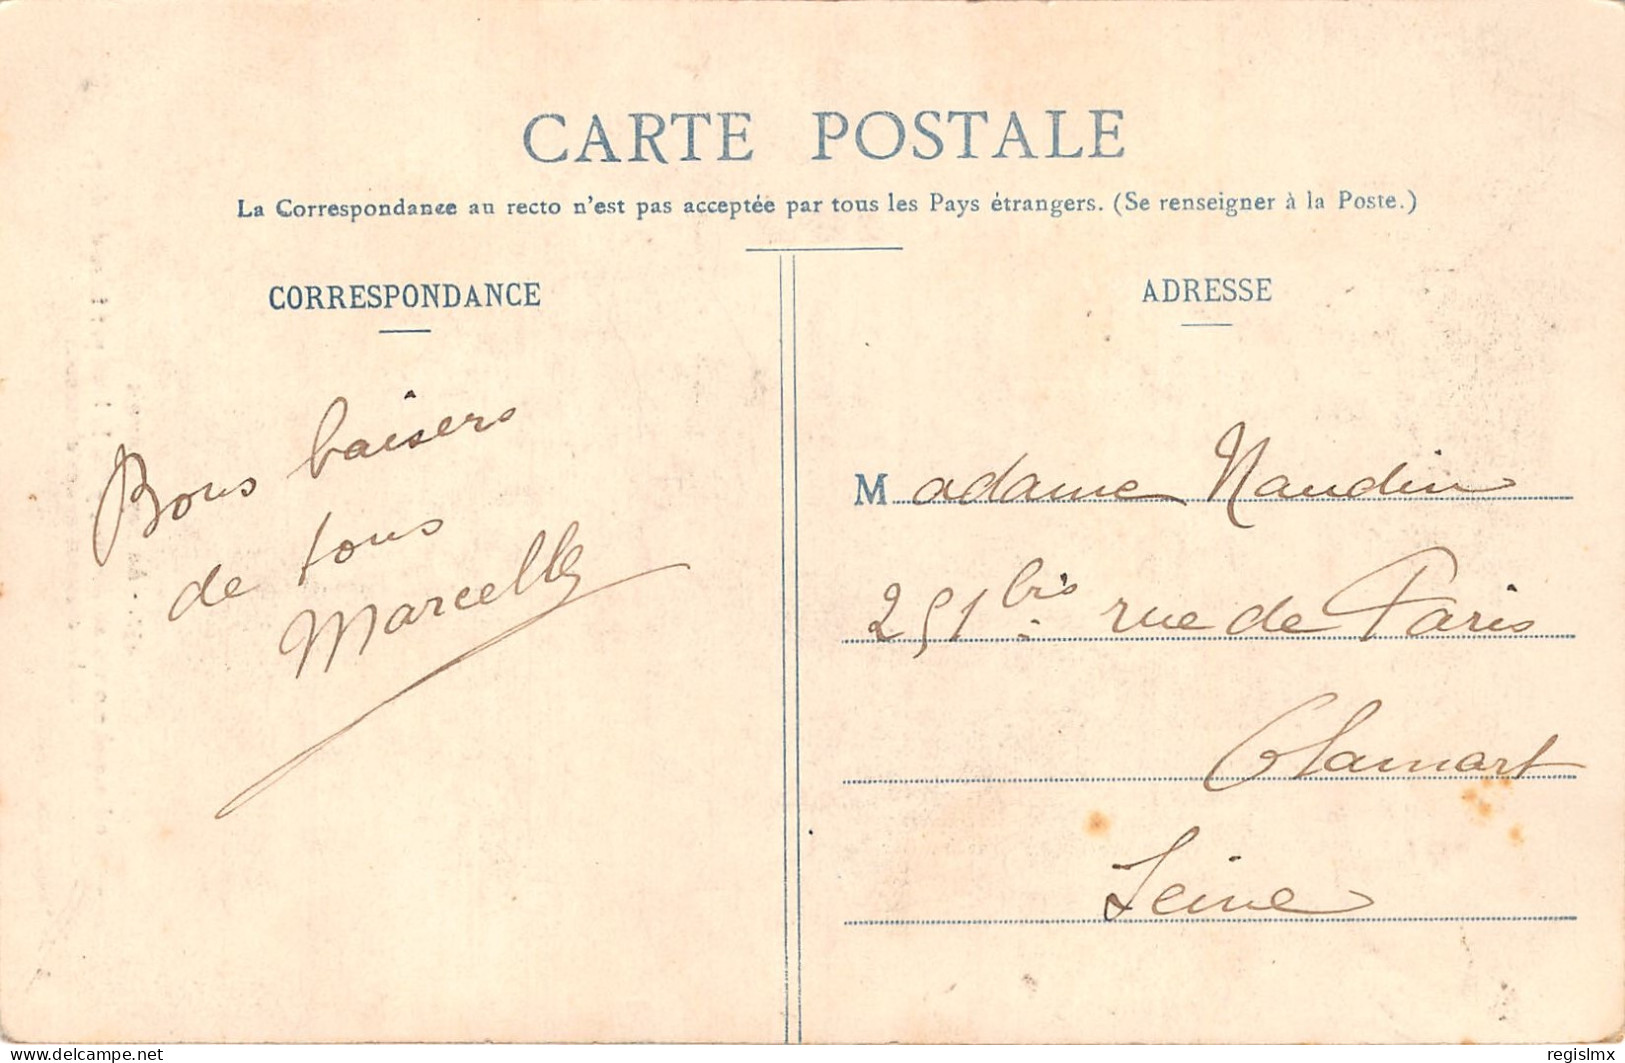 CARTE POSTALE
La Correspondance au recto n'est pas acceptée par tous les Pays étrangers. (Se renseigner à la Poste.)
CORRESPONDANCE
Bons baisers
de tous
Marcelle
ADRESSE
Madame Naudin
251 bis rue de Paris
Clamart
Seine
www.delcampe.net
regislmx